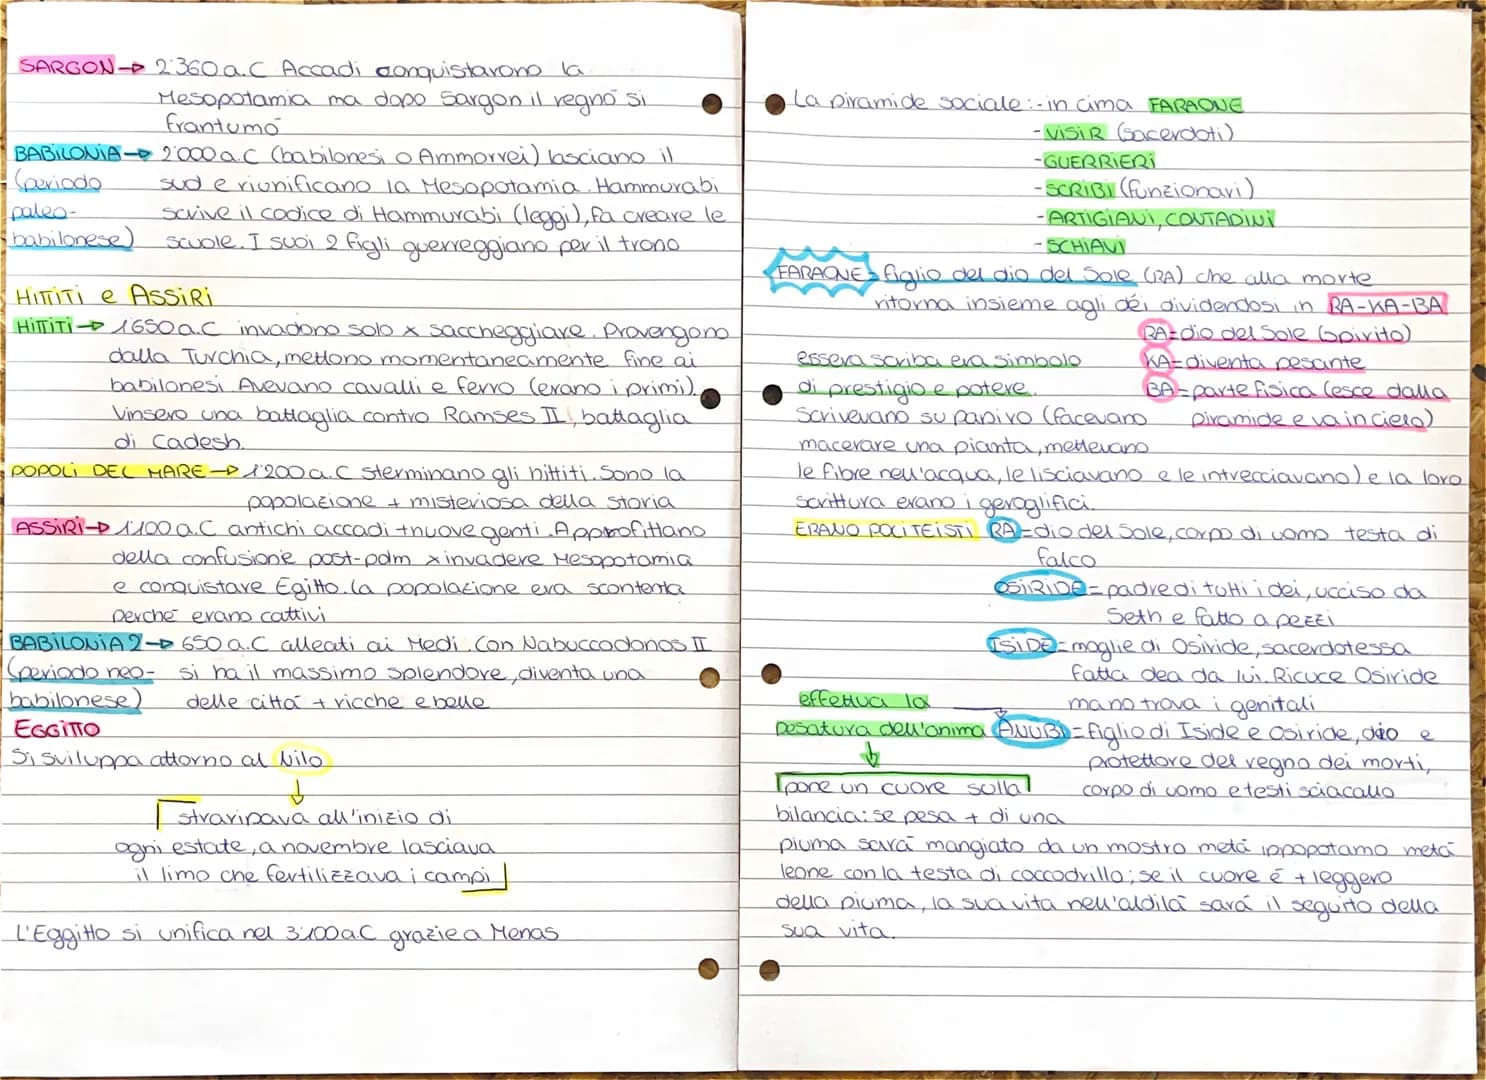 SARGON → 2'360 a.C Accadi conquistarono la
Mesopotamia ma dopo Sargon il regno si
frantumó
BABILONIA → 2'000 a.C (babilonesi o Ammorrei) lasciano il
(periodo sud e riunificano la Mesopotamia. Hammurabi
paleo- scrive il codice di Hammurabi (leggi), fa creare le
babilonese) scuole. I suoi 2 figli guerreggiano per il trono
HITTITI e ASSIRI
HITTITI → 1'650 a.C invadono solo x saccheggiare. Provengono
dalla Turchia, mettono momentaneamente fine ai
babilonesi Avevano cavalli e ferro (erano i primi).
Vinsero una battaglia contro Ramses II, battaglia
di Cadesh.
POPOLI DEL MARE → 1'200 a.C sterminano gli hittiti. Sono la
popolazione + misteriosa della storia
ASSIRI → 1'100 a.C antichi accadi + nuove genti. Approfittano
della confusione post-pdm x invadere Mesopotamia
e conquistare Egitto. la popolazione era scontenta
perché erano cattivi
BABILONIA 2 → 650 a.C alleati ai Medi. Con Nabuccodonos II
(periodo neo- si ha il massimo splendore, diventa una
babilonese) delle cittá + ricche e belle
EGGITTO
Si sviluppa attorno al Nilo
straripava all'inizio di
ogni estate, a novembre lasciava
il limo che fertilizzava i campi
L'Eggitto si unifica nel 3'100 a.C grazie a Menas
La piramide sociale: - in cima FARAONE
- VISIR (sacerdoti)
- GUERRIERI
- SCRIBI (funzionari)
- ARTIGIANI, CONTADINI
- SCHIAVI
FARAONE = figlio del dio del Sole (RA) che alla morte
ritorna insieme agli déi dividendosi in RA-KA-BA
RA = dio del Sole (spirito)
essera scriba era simbolo KA = diventa pesante
di prestigio e potere. BA = parte fisica (esce dalla
Scrivevano su papiro (facevano piramide e va in cielo)
macerare una pianta, mettevano
le fibre nell'acqua, le lisciavano e le intrecciavano) e la loro
scrittura erano i geroglifici.
ERANO POLITEISTI RA = dio del Sole, corpo di uomo testa di
falco
OSIRIDE = padre di tutti i dei, ucciso da
Seth e fatto a pezzi
ISIDE = moglie di Osiride, sacerdotessa
fatta dea da lui. Ricuce Osiride
effettua la ma no trova i genitali
pesatura dell'anima ANUBI = figlio di Iside e Osiride, dio e
protettore del regno dei morti,
pone un cuore sulla corpo di uomo e testi sciacallo
bilancia: se pesa + di una
piuma sará mangiato da un mostro metá ippopotamo metá
leone con la testa di coccodrillo; se il cuore é + leggero
della piuma, la sua vita nell'aldilá sará il seguito della
sua vita.